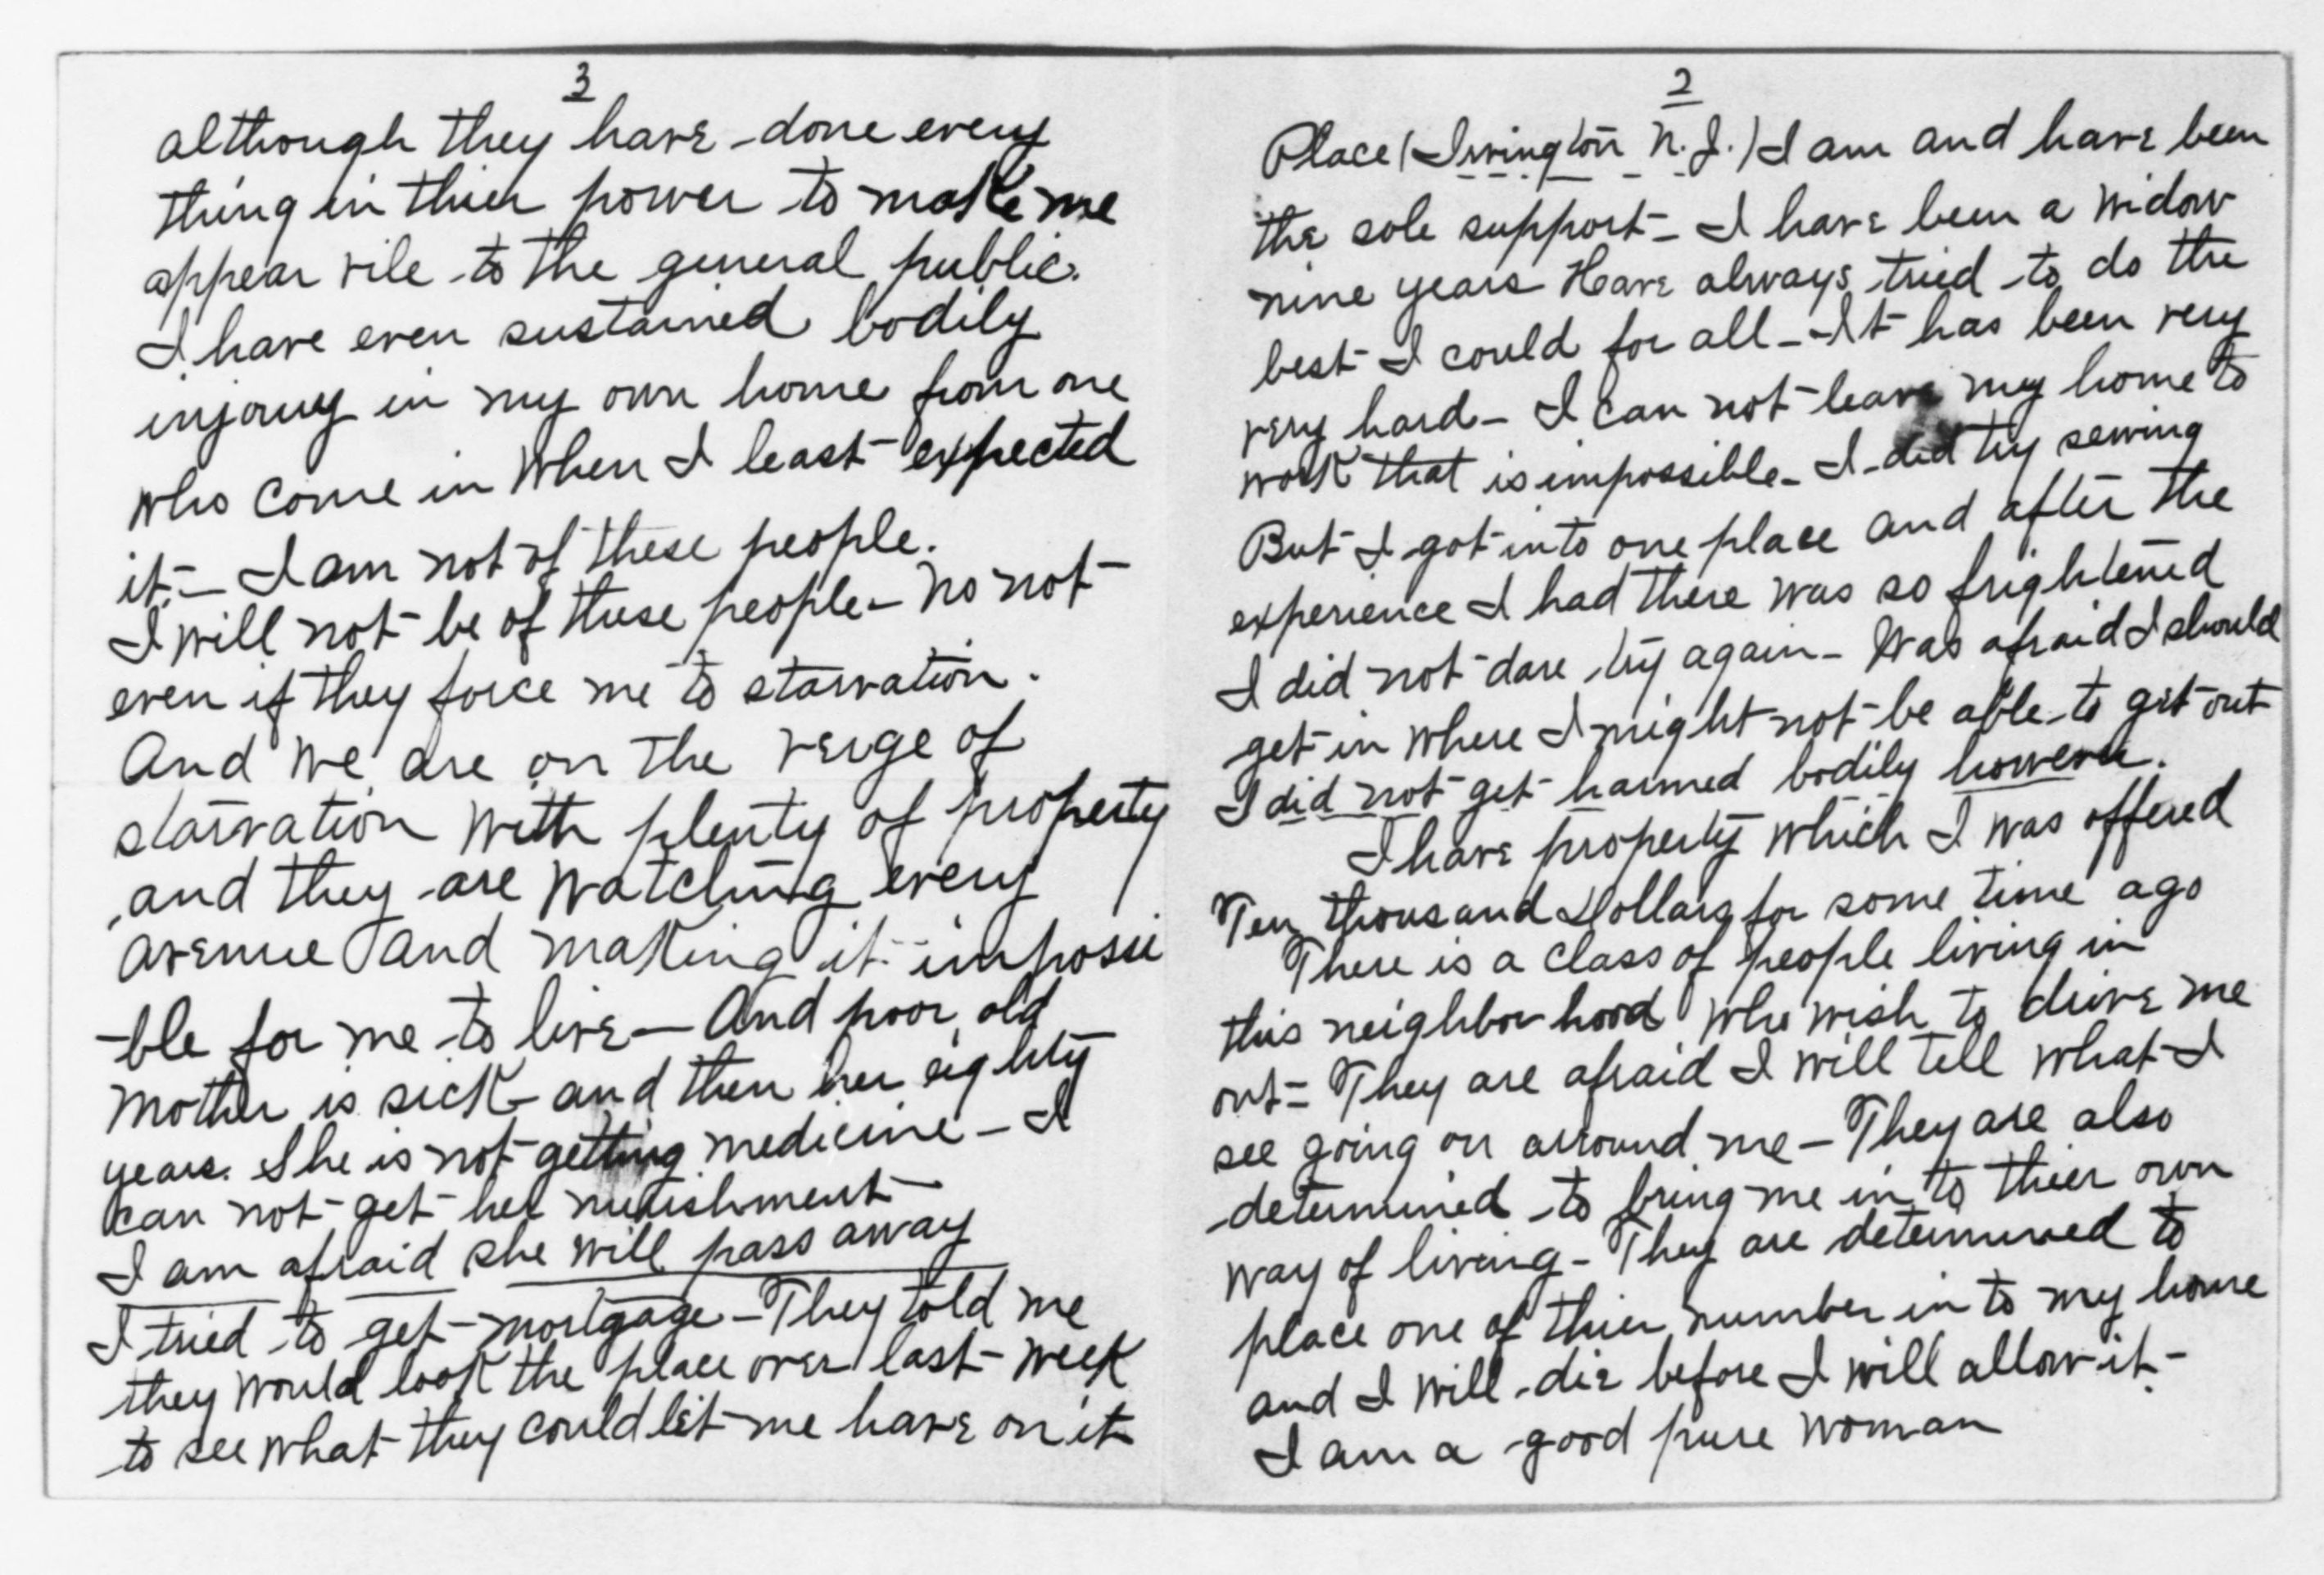 2
Place (Irvington N.J.) I am and have been
the sole support - I have been a widow
nine years Have always tried to do the
best I could for all - It has been very
very hard - I can not leave my home to
work that is impossible - I did try sewing
But I got into one place and after the
experience I had there was so frightened
I did not dare try again - Was afraid I should
get in where I might not be able to get out
I did not get harmed bodily however.
I have property which I was offered
Ten thousand Dollars for some time ago
There is a class of people living in
this neighbor hood who wish to drive me
out = They are afraid I will tell what I
see going on arround me - They are also
determined to bring me in to thier own
way of living - They are determined to
place one of thier number in to my home
and I will die before I will allow it -
I am a good pure woman
3
although they have done every
thing in thier power to make me
appear vile to the general public.
I have even sustained bodily
injouy in my own home from one
who come in when I least expected
it. - I am not of these people.
I will not be of these people - no not
even if they force me to starvation.
And we are on the verge of
starvation with plenty of property
and they are watching every
avenue and making it impossi
-ble for me to live - And poor old
mother is sick - and then her eighty
years. She is not getting medicine - I
can not get her nurishment
I am afraid she will pass away
I tried to get mortgage - They told me
they would look the place over last week
to see what they could let me have on it